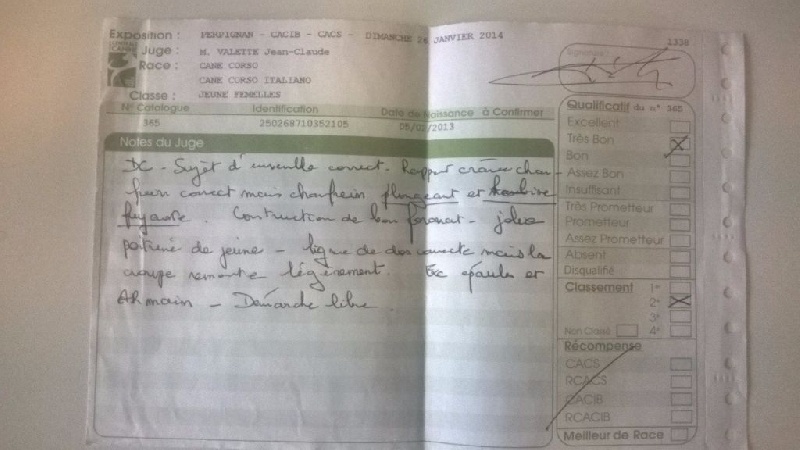 Exposition : PERPIGNAN - CACIB - CACS - DIMANCHE 26 JANVIER 2014
1338
Juge : M. VALETTE Jean-Claude
Signature :
Race : CANE CORSO
CANE CORSO ITALIANO
Classe : JEUNE FEMELLES
N° Catalogue Identification Date de Naissance à Confirmer
365 250268710352105 2013
Notes du Juge
DC - Sujet d'ensemble correct. Rapport crâne chan-
frein correct mais chanfrein plongeant et
fuyante. Construction de bon format - jolie
poitrine de jeune - ligne de dos correcte mais la
croupe remonte légèrement. épaules et
AR main - Démarche libre.
Qualificatif du n° 365
Excellent
Très Bon
Bon
Assez Bon
Insuffisant
Très Prometteur
Prometteur
Assez Prometteur
Absent
Disqualifié
Classement 1°
2°
3°
Non Classé 4°
Récompense
CACS
RCACS
CACIB
RCACIB
Meilleur de Race